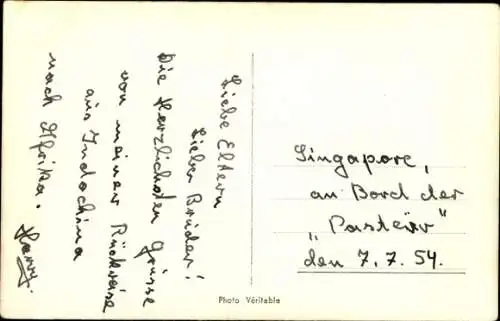 Liebe Eltern
Lieber Bruder!
Die Herzlichsten Grüsse
von meiner Rückreise
aus Indochina
nach Afrika.
Harry.
Singapore,
an Bord der
„Pasteur"
den 7. 7. 54.
Photo Véritable